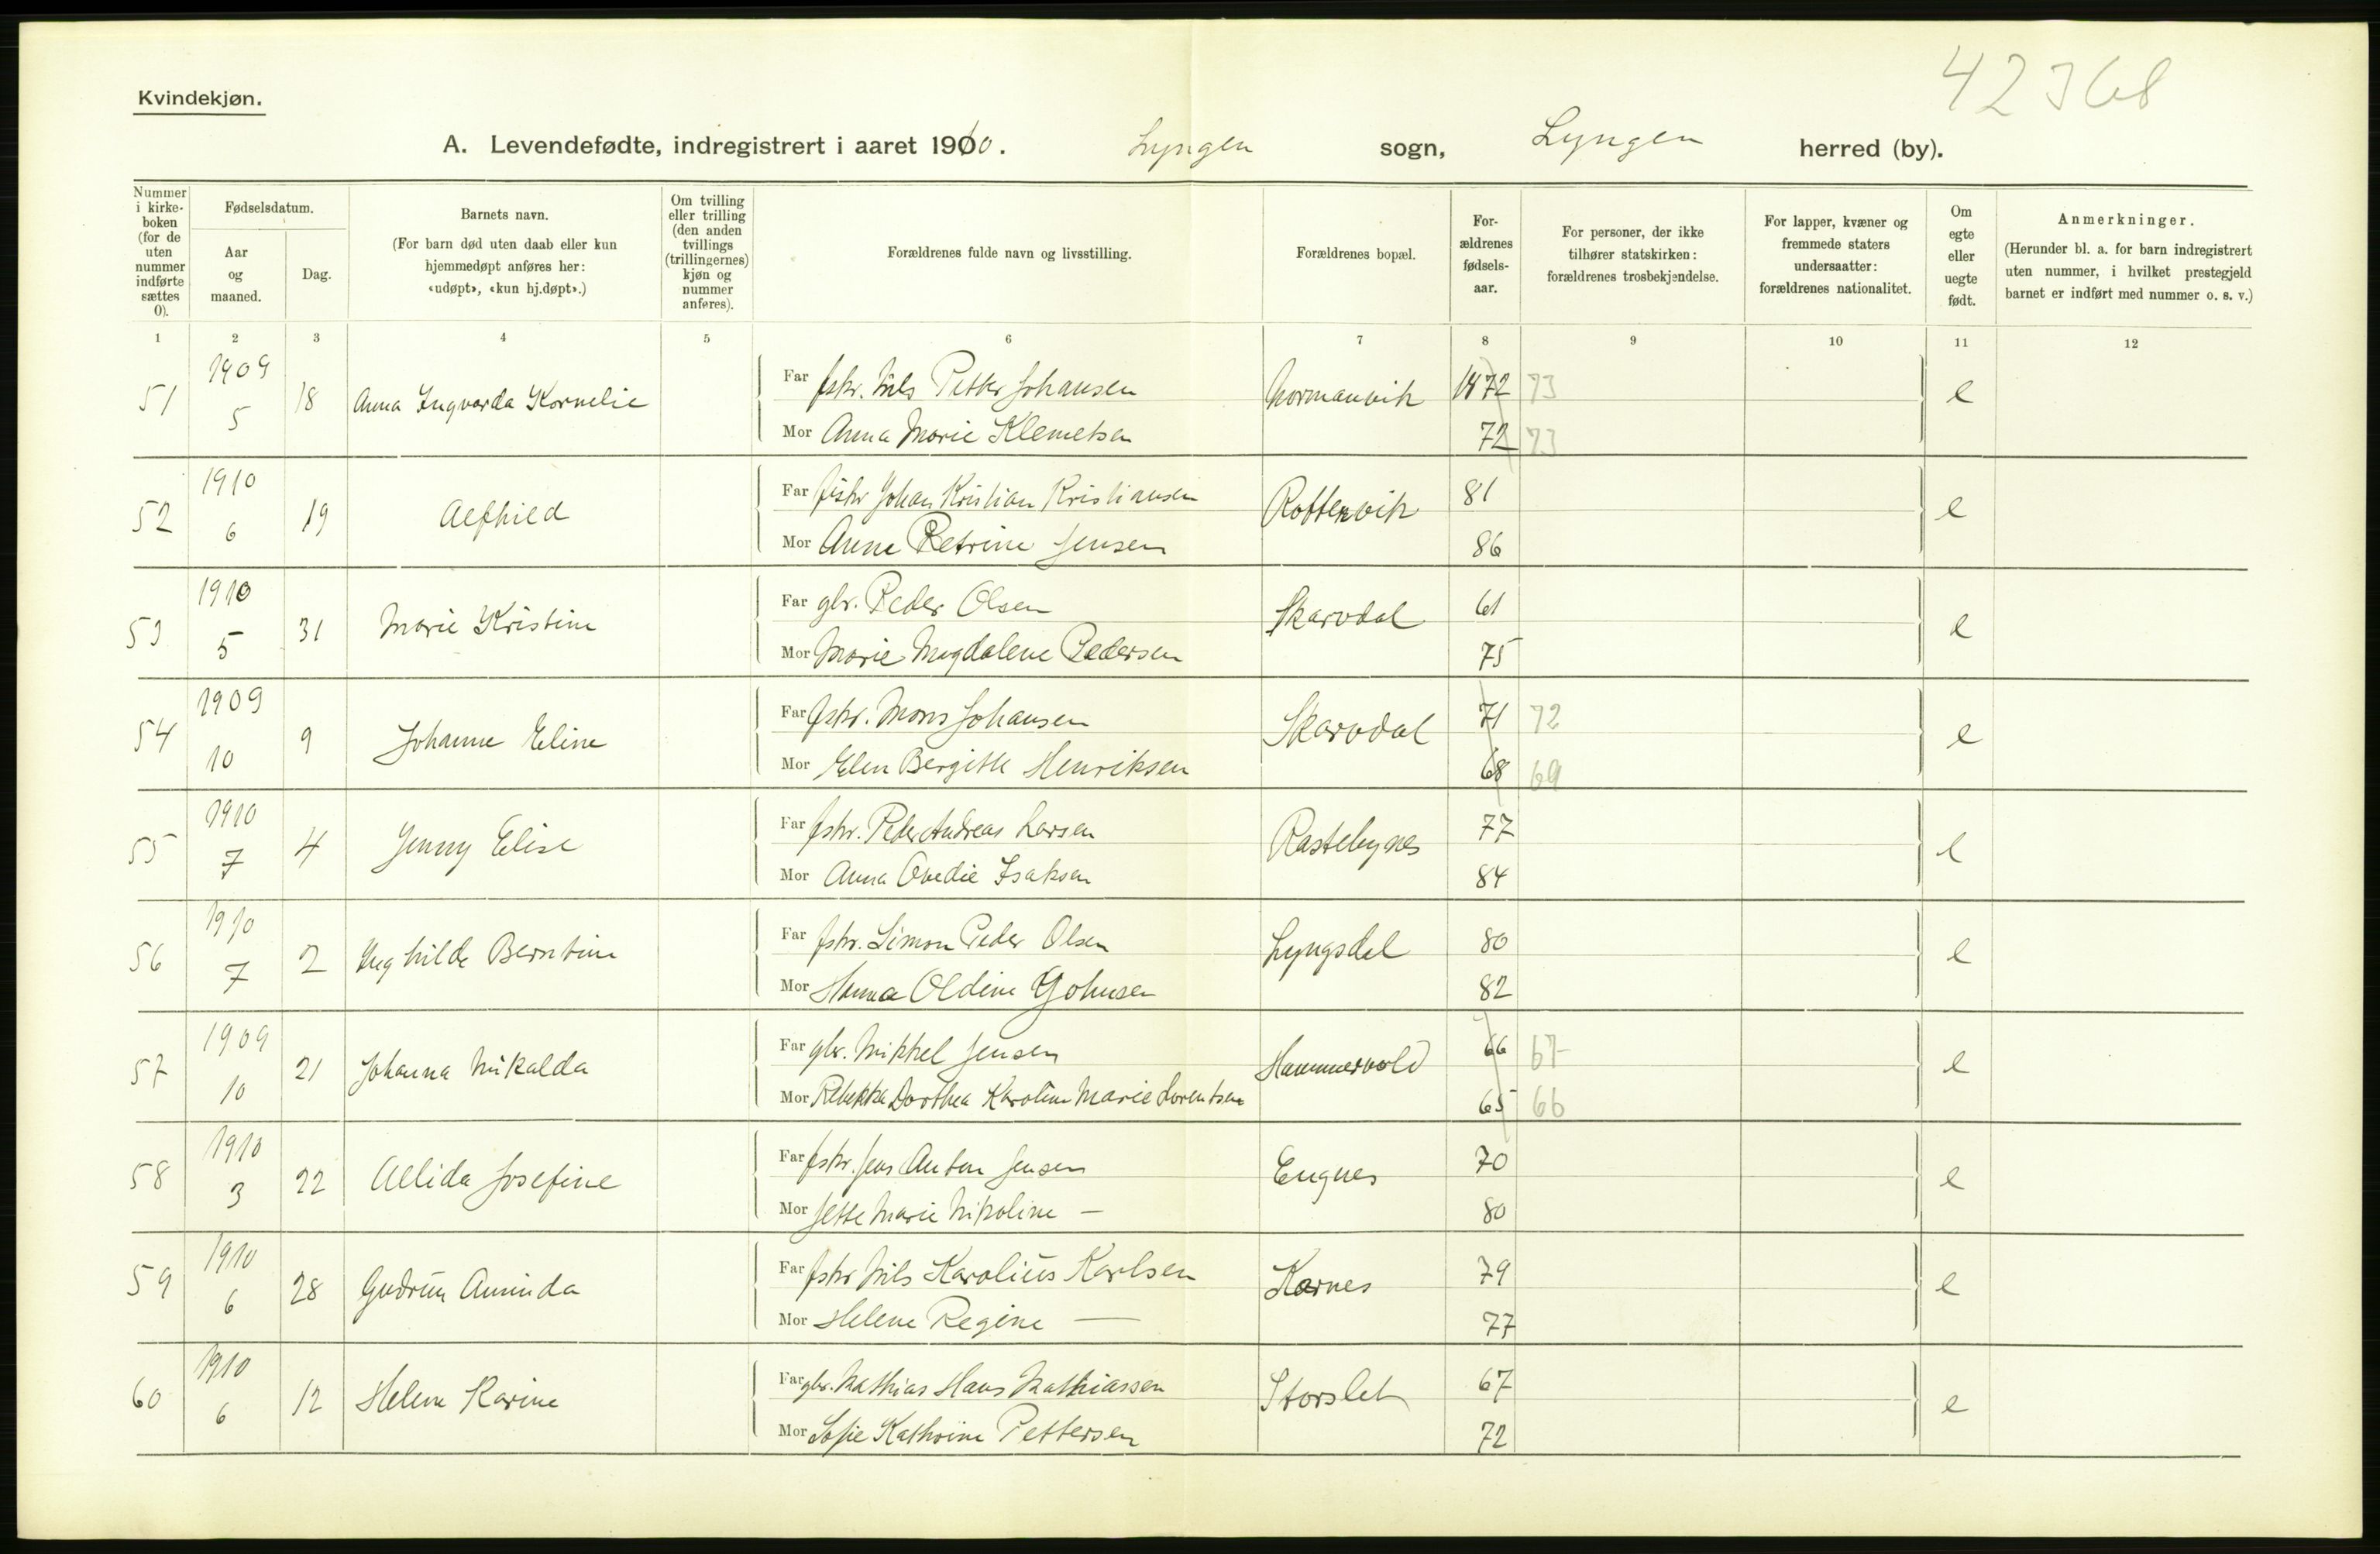 42368
Kvindekjøn.
A. Levendefødte, indregistrert i aaret 1910. Lyngen sogn, Lyngen herred (by).
Nummer i kirke-boken (for de uten nummer indførte sættes 0).
Fødselsdatum.
Aar og maaned.
Dag.
Barnets navn.
(For barn død uten daab eller kun hjemmedøpt anføres her: «udøpt», «kun hj.døpt».)
Om tvilling eller trilling (den anden tvillings (trillingernes) kjøn og nummer anføres).
Forældrenes fulde navn og livsstilling.
Forældrenes bopæl.
For-ældrenes fødsels-aar.
For personer, der ikke tilhører statskirken: forældrenes trosbekjendelse.
For lapper, kvæner og fremmede staters undersaatter: forældrenes nationalitet.
Om egte eller uegte født.
Anmerkninger.
(Herunder bl. a. for barn indregistrert uten nummer, i hvilket prestegjeld barnet er indført med nummer o. s. v.)
1 2 3 4 5 6 7 8 9 10 11 12
51 1909 5 18 Anna Ingvarda Kornelie Far fskr. Nils Petter Johansen Normanvik 1872 73 e
Mor Anna Marie Klemetsen 72 73
52 1910 6 19 Alfhild Far fiskr Johan Kristian Kristiansen Rottenvik 81 e
Mor Anne Petrine Jensen 86
53 1910 5 31 Marie Kristine Far gbr. Peder Olsen Skarvdal 61 e
Mor Marie Magdalene Pedersen 75
54 1909 10 9 Johanne Eline Far fskr. Mons Johansen Skarvdal 71 72 e
Mor Elen Bergitte Henriksen 68 69
55 1910 7 4 Jenny Elise Far fskr. Peder Andreas Larsen Rastebynes 77 e
Mor Anna Ovedie Isaksen 84
56 1910 7 2 Inghilda Berntine Far fskr. Simon Peder Olsen Lyngsdal 80 e
Mor Hanna Oldine Johnsen 82
57 1909 10 21 Johanna Mikalda Far gbr. Mikkel Jensen Hammervold 66 67 e
Mor Rebekka Dorthea Karoline Marie Lorentsen 65 66
58 1910 3 22 Allida Josefine Far fskr. Jens Anton Jensen Engnes 70 e
Mor Jette Marie Nikoline — 80
59 1910 6 28 Gudrun Aminda Far fskr Nils Karolius Karlsen Karnes 79 e
Mor Helene Regine — 77
60 1910 6 12 Helene Karine Far gbr. Mathias Hans Mathiassen Storslet 67 e
Mor Sofie Kathrine Pettersen 72